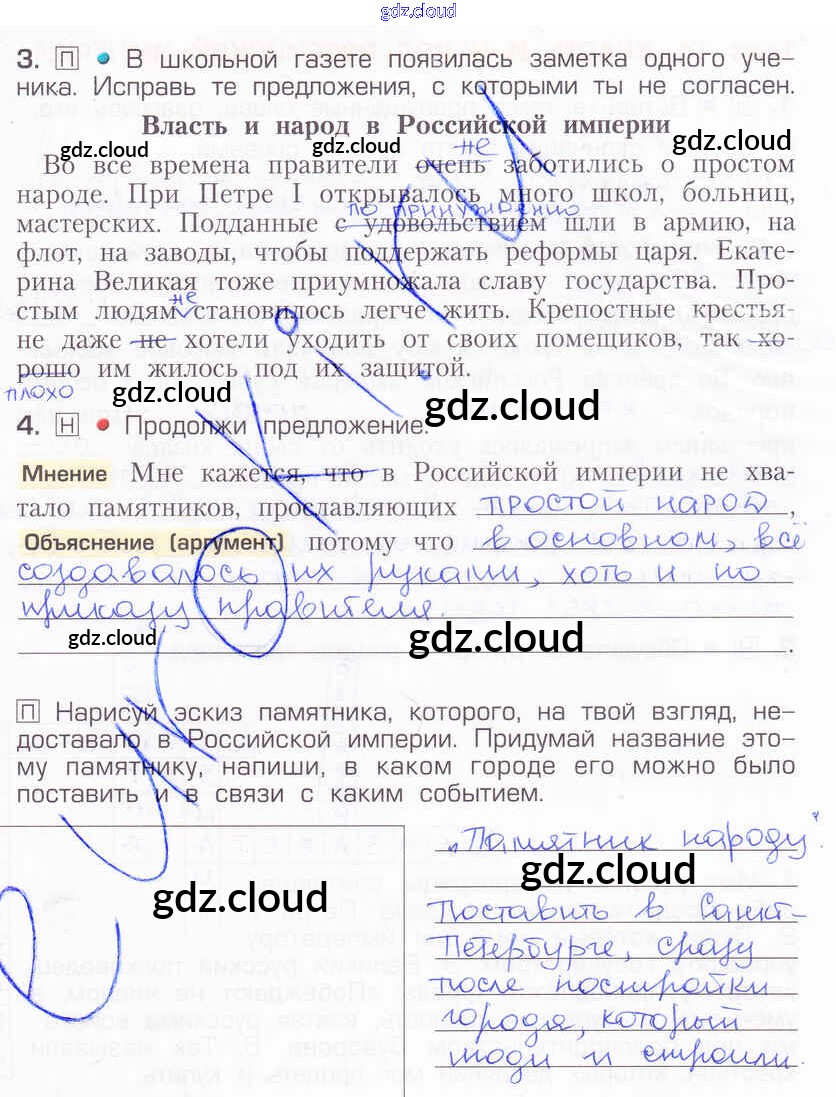 gdz.cloud
3. П • В школьной газете появилась заметка одного уче-
ника. Исправь те предложения, с которыми ты не согласен.
Власть и народ в Российской империи
gdz.cloud gdz.cloud gdz.cloud
не
Во все времена правители очень заботились о простом
народе. При Петре I открывалось много школ, больниц,
по принуждению
мастерских. Подданные с удовольствием шли в армию, на
флот, на заводы, чтобы поддержать реформы царя. Екате-
рина Великая тоже приумножала славу государства. Про-
не
стым людям становилось легче жить. Крепостные крестья-
не даже не хотели уходить от своих помещиков, так хо-
рошо им жилось под их защитой.
плохо
gdz.cloud gdz.cloud
4. Н • Продолжи предложение.
Мнение Мне кажется, что в Российской империи не хва-
тало памятников, прославляющих простой народ,
Объяснение (аргумент) потому что в основном, всё
создавалось их руками, хоть и по
приказу правителя.
gdz.cloud gdz.cloud
П Нарисуй эскиз памятника, которого, на твой взгляд, не-
доставало в Российской империи. Придумай название это-
му памятнику, напиши, в каком городе его можно было
поставить и в связи с каким событием.
„Памятник народу"
gdz.cloud gdz.cloud
Поставить в Санкт-
Петербурге, сразу
после постройки
города, который
люди и строили.